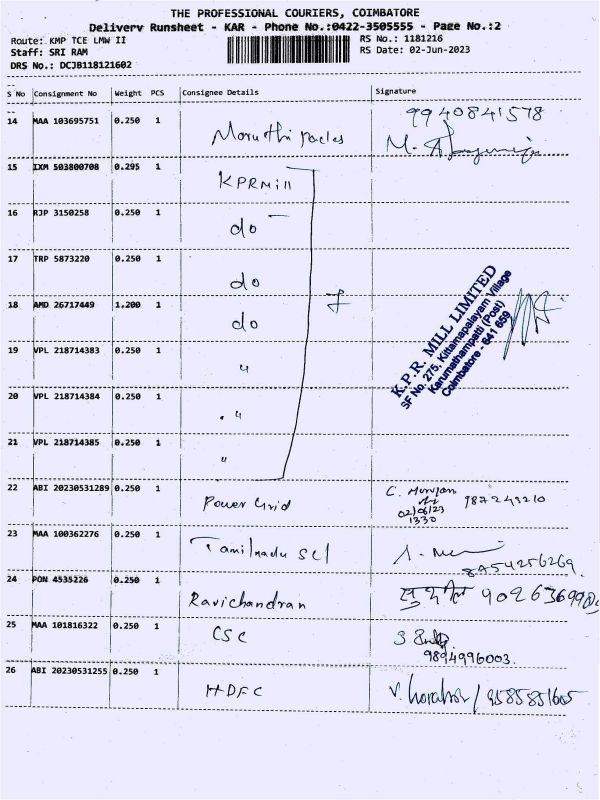 THE PROFESSIONAL COURIERS, COIMBATORE
Delivery Runsheet - KAR - Phone No.:0422-3505555 - Page No.:2
Route: KMP TCE LMW II RS No.: 1181216
Staff: SRI RAM RS Date: 02-Jun-2023
DRS No.: DCJB118121602
S No Consignment No Weight PCS Consignee Details Signature
14 MAA 103695751 0.250 1 9940841578
M.
15 IXM 503800708 0.295 1 KPRMill
16 RJP 3150258 0.250 1 do
17 TRP 5873220 0.250 1 do
18 AMD 26717449 1.200 1 do
7
K.P.R. MILL LIMITED
SF No. 275, Kittampalayam Village
Karumathampatti (Post)
Coimbatore - 641 659
19 VPL 218714383 0.250 1 "
20 VPL 218714384 0.250 1 "
21 VPL 218714385 0.250 1 "
22 ABI 20230531289 0.250 1 Power Grid C. Murugan 987243210
02/06/23
1330
23 MAA 100362276 0.250 1 Tamilnadu 8454256269
24 PON 4535226 0.250 1 Ravichandran
25 MAA 101816322 0.250 1 CSC S
9894996003.
26 ABI 20230531255 0.250 1 HDFC V. / 9585851605